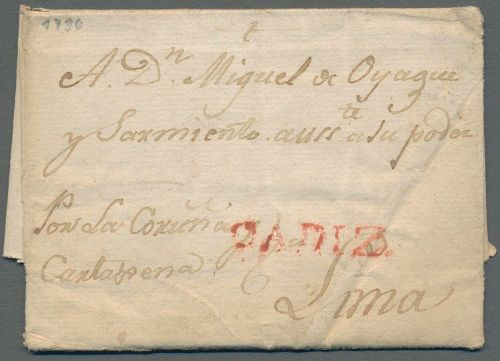 1796
A. D.n Miguel de Oyague
y Sarmiento. auss.te a su poder
Por La Coruña y
Cartagena
CADIZ.
Lima